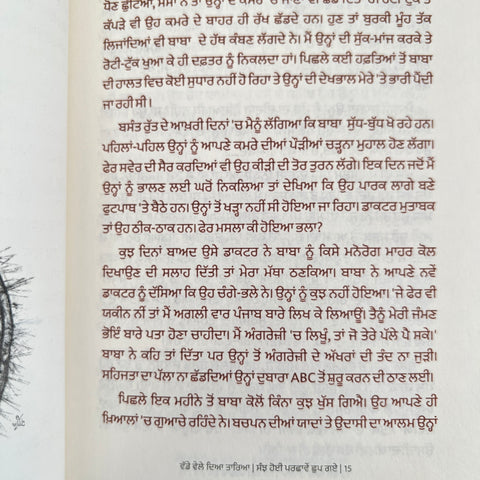 ਧੋਣ ਛੁਟਿਆ, ਮਸਾਂ ਨੇ ਤਾਂ ਉਨ੍ਹਾਂ ਦੇ ਕਮਰੇ 'ਚ ਜਾਣਾ ਵੀ ਛੱਡ ਦਿੱਤਾ ਹੈ। ਰੋਟੀ ਟੁੱਕ ਤੇ
ਕੱਪੜੇ ਵੀ ਉਹ ਕਮਰੇ ਦੇ ਬਾਹਰ ਹੀ ਰੱਖ ਛੱਡਦੇ ਹਨ। ਹੁਣ ਤਾਂ ਬੁਰਕੀ ਮੂੰਹ ਤੱਕ
ਲਿਜਾਂਦਿਆਂ ਵੀ ਬਾਬਾ ਦੇ ਹੱਥ ਕੰਬਣ ਲੱਗਦੇ ਨੇ। ਮੈਂ ਉਨ੍ਹਾਂ ਦੀ ਸੁੱਕ-ਮਾਂਜ ਕਰਕੇ ਤੇ
ਰੋਟੀ-ਟੁੱਕ ਖੁਆ ਕੇ ਹੀ ਦਫ਼ਤਰ ਨੂੰ ਨਿਕਲਦਾ ਹਾਂ। ਪਿਛਲੇ ਕਈ ਹਫ਼ਤਿਆਂ ਤੋਂ ਬਾਬਾ
ਦੀ ਹਾਲਤ ਵਿਚ ਕੋਈ ਸੁਧਾਰ ਨਹੀਂ ਹੋ ਰਿਹਾ ਤੇ ਉਨ੍ਹਾਂ ਦੀ ਦੇਖਭਾਲ ਮੇਰੇ 'ਤੇ ਭਾਰੀ ਪੈਂਦੀ
ਜਾ ਰਹੀ ਸੀ।
ਬਸੰਤ ਰੁੱਤ ਦੇ ਆਖ਼ਰੀ ਦਿਨਾਂ 'ਚ ਮੈਨੂੰ ਲੱਗਿਆ ਕਿ ਬਾਬਾ ਸੁੱਧ-ਬੁੱਧ ਖੋ ਰਹੇ ਹਨ।
ਪਹਿਲਾਂ-ਪਹਿਲ ਉਨ੍ਹਾਂ ਨੂੰ ਆਪਣੇ ਕਮਰੇ ਦੀਆਂ ਪੌੜੀਆਂ ਚੜ੍ਹਨਾ ਮੁਹਾਲ ਹੋਣ ਲੱਗਾ।
ਫੇਰ ਸਵੇਰ ਦੀ ਸੈਰ ਕਰਦਿਆਂ ਵੀ ਉਹ ਕੀੜੀ ਦੀ ਤੋਰ ਤੁਰਨ ਲੱਗੇ। ਇਕ ਦਿਨ ਜਦੋਂ ਮੈਂ
ਉਨ੍ਹਾਂ ਨੂੰ ਭਾਲਣ ਲਈ ਘਰੋਂ ਨਿਕਲਿਆ ਤਾਂ ਦੇਖਿਆ ਕਿ ਉਹ ਪਾਰਕ ਲਾਗੇ ਬਣੇ
ਫੁਟਪਾਥ 'ਤੇ ਬੈਠੇ ਹਨ। ਉਨ੍ਹਾਂ ਤੋਂ ਖੜ੍ਹਾ ਨਹੀਂ ਸੀ ਹੋਇਆ ਜਾ ਰਿਹਾ। ਡਾਕਟਰ ਮੁਤਾਬਕ
ਤਾਂ ਉਹ ਠੀਕ-ਠਾਕ ਹਨ। ਫੇਰ ਮਸਲਾ ਕੀ ਹੋਇਆ ਭਲਾ?
ਕੁਝ ਦਿਨਾਂ ਬਾਅਦ ਉਸੇ ਡਾਕਟਰ ਨੇ ਬਾਬਾ ਨੂੰ ਕਿਸੇ ਮਨੋਰੋਗ ਮਾਹਰ ਕੋਲ
ਦਿਖਾਉਣ ਦੀ ਸਲਾਹ ਦਿੱਤੀ ਤਾਂ ਮੇਰਾ ਮੱਥਾ ਠਣਕਿਆ। ਬਾਬਾ ਨੇ ਆਪਣੇ ਨਵੇਂ
ਡਾਕਟਰ ਨੂੰ ਦੱਸਿਆ ਕਿ ਉਹ ਚੰਗੇ-ਭਲੇ ਨੇ। ਉਨ੍ਹਾਂ ਨੂੰ ਕੁਝ ਨਹੀਂ ਹੋਇਆ। 'ਜੇ ਫੇਰ ਵੀ
ਯਕੀਨ ਨੀਂ ਤਾਂ ਮੈਂ ਅਗਲੀ ਵਾਰ ਪੰਜਾਬ ਬਾਰੇ ਲਿਖ ਕੇ ਲਿਆਊਂ! ਤੈਨੂੰ ਮੇਰੀ ਜੰਮਣ
ਭੋਇੰ ਬਾਰੇ ਪਤਾ ਹੋਣਾ ਚਾਹੀਦਾ। ਮੈਂ ਅੰਗਰੇਜ਼ੀ 'ਚ ਲਿਖੂੰ, ਤਾਂ ਜੋ ਤੇਰੇ ਪੱਲੇ ਪੈ ਸਕੇ।'
ਬਾਬਾ ਨੇ ਕਹਿ ਤਾਂ ਦਿੱਤਾ ਪਰ ਉਨ੍ਹਾਂ ਤੋਂ ਅੰਗਰੇਜ਼ੀ ਦੇ ਅੱਖਰਾਂ ਦੀ ਤੰਦ ਨਾ ਜੁੜੀ।
ਸਹਿਜਤਾ ਦਾ ਪੱਲਾ ਨਾ ਛੱਡਦਿਆਂ ਉਨ੍ਹਾਂ ਦੁਬਾਰਾ ABC ਤੋਂ ਸ਼ੁਰੂ ਕਰਨ ਦੀ ਠਾਣ ਲਈ।
ਪਿਛਲੇ ਇਕ ਮਹੀਨੇ ਤੋਂ ਬਾਬਾ ਕੋਲੋਂ ਕਿੰਨਾ ਕੁਝ ਖੁੱਸ ਗਿਐ। ਉਹ ਆਪਣੇ ਹੀ
ਖ਼ਿਆਲਾਂ 'ਚ ਗੁਆਚੇ ਰਹਿੰਦੇ ਨੇ। ਬਚਪਨ ਦੀਆਂ ਯਾਦਾਂ ਤੇ ਉਦਾਸੀ ਦਾ ਆਲਮ ਉਨ੍ਹਾਂ
ਵੱਡੇ ਵੇਲੇ ਦਿਆ ਤਾਰਿਆ | ਸੰਝ ਹੋਈ ਪਰਛਾਵੇਂ ਛੁਪ ਗਏ | 15